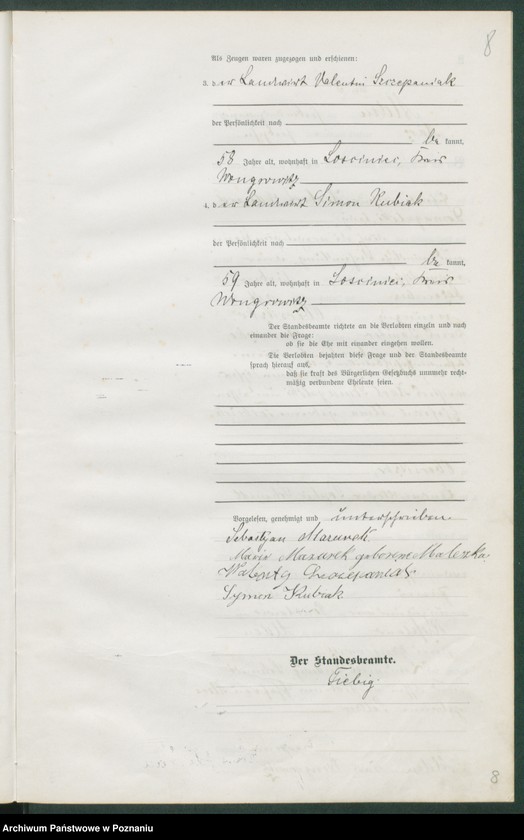 8
Als Zeugen waren zugezogen und erschienen:
3. der Landwirt Valentin Szczepaniak
der Persönlichkeit nach
be kannt,
58 Jahre alt, wohnhaft in Losciniec, Kreis
Wongrowitz
4. der Landwirt Simon Kubiak
der Persönlichkeit nach
be kannt,
59 Jahre alt, wohnhaft in Losciniec, Kreis
Wongrowitz
Der Standesbeamte richtete an die Verlobten einzeln und nach
einander die Frage:
ob sie die Ehe mit einander eingehen wollen.
Die Verlobten bejahten diese Frage und der Standesbeamte
sprach hierauf aus,
daß sie kraft des Bürgerlichen Gesetzbuchs nunmehr recht-
mäßig verbundene Eheleute seien.
Vorgelesen, genehmigt und unterschrieben
Sebastjan Mazurek
Marie Mazurek geborene Maleszka
Szymon Kubiak
Der Standesbeamte.
Fiebig
8
Archiwum Państwowe w Poznaniu